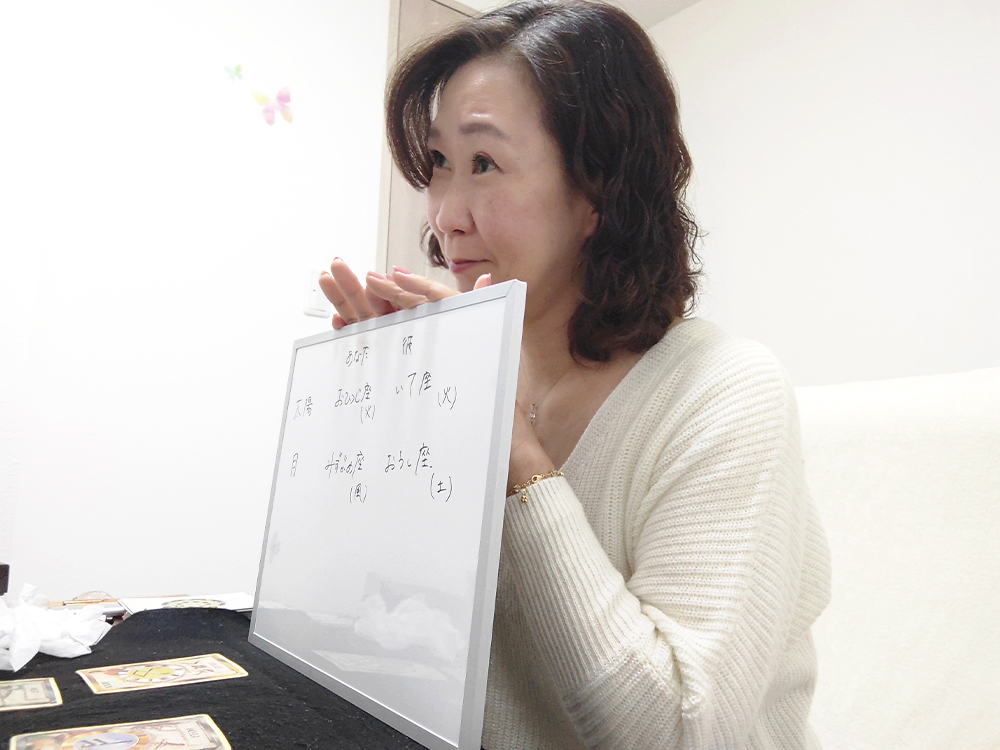 あなた 彼
太陽 おひつじ座 いて座
(火) (火)
月 みずがめ座 おうし座
(風) (土)